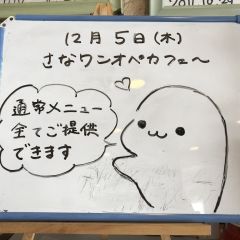 12月5日(木)
さなワンオペカフェ〜
通常メニュー
全てご提供
できます